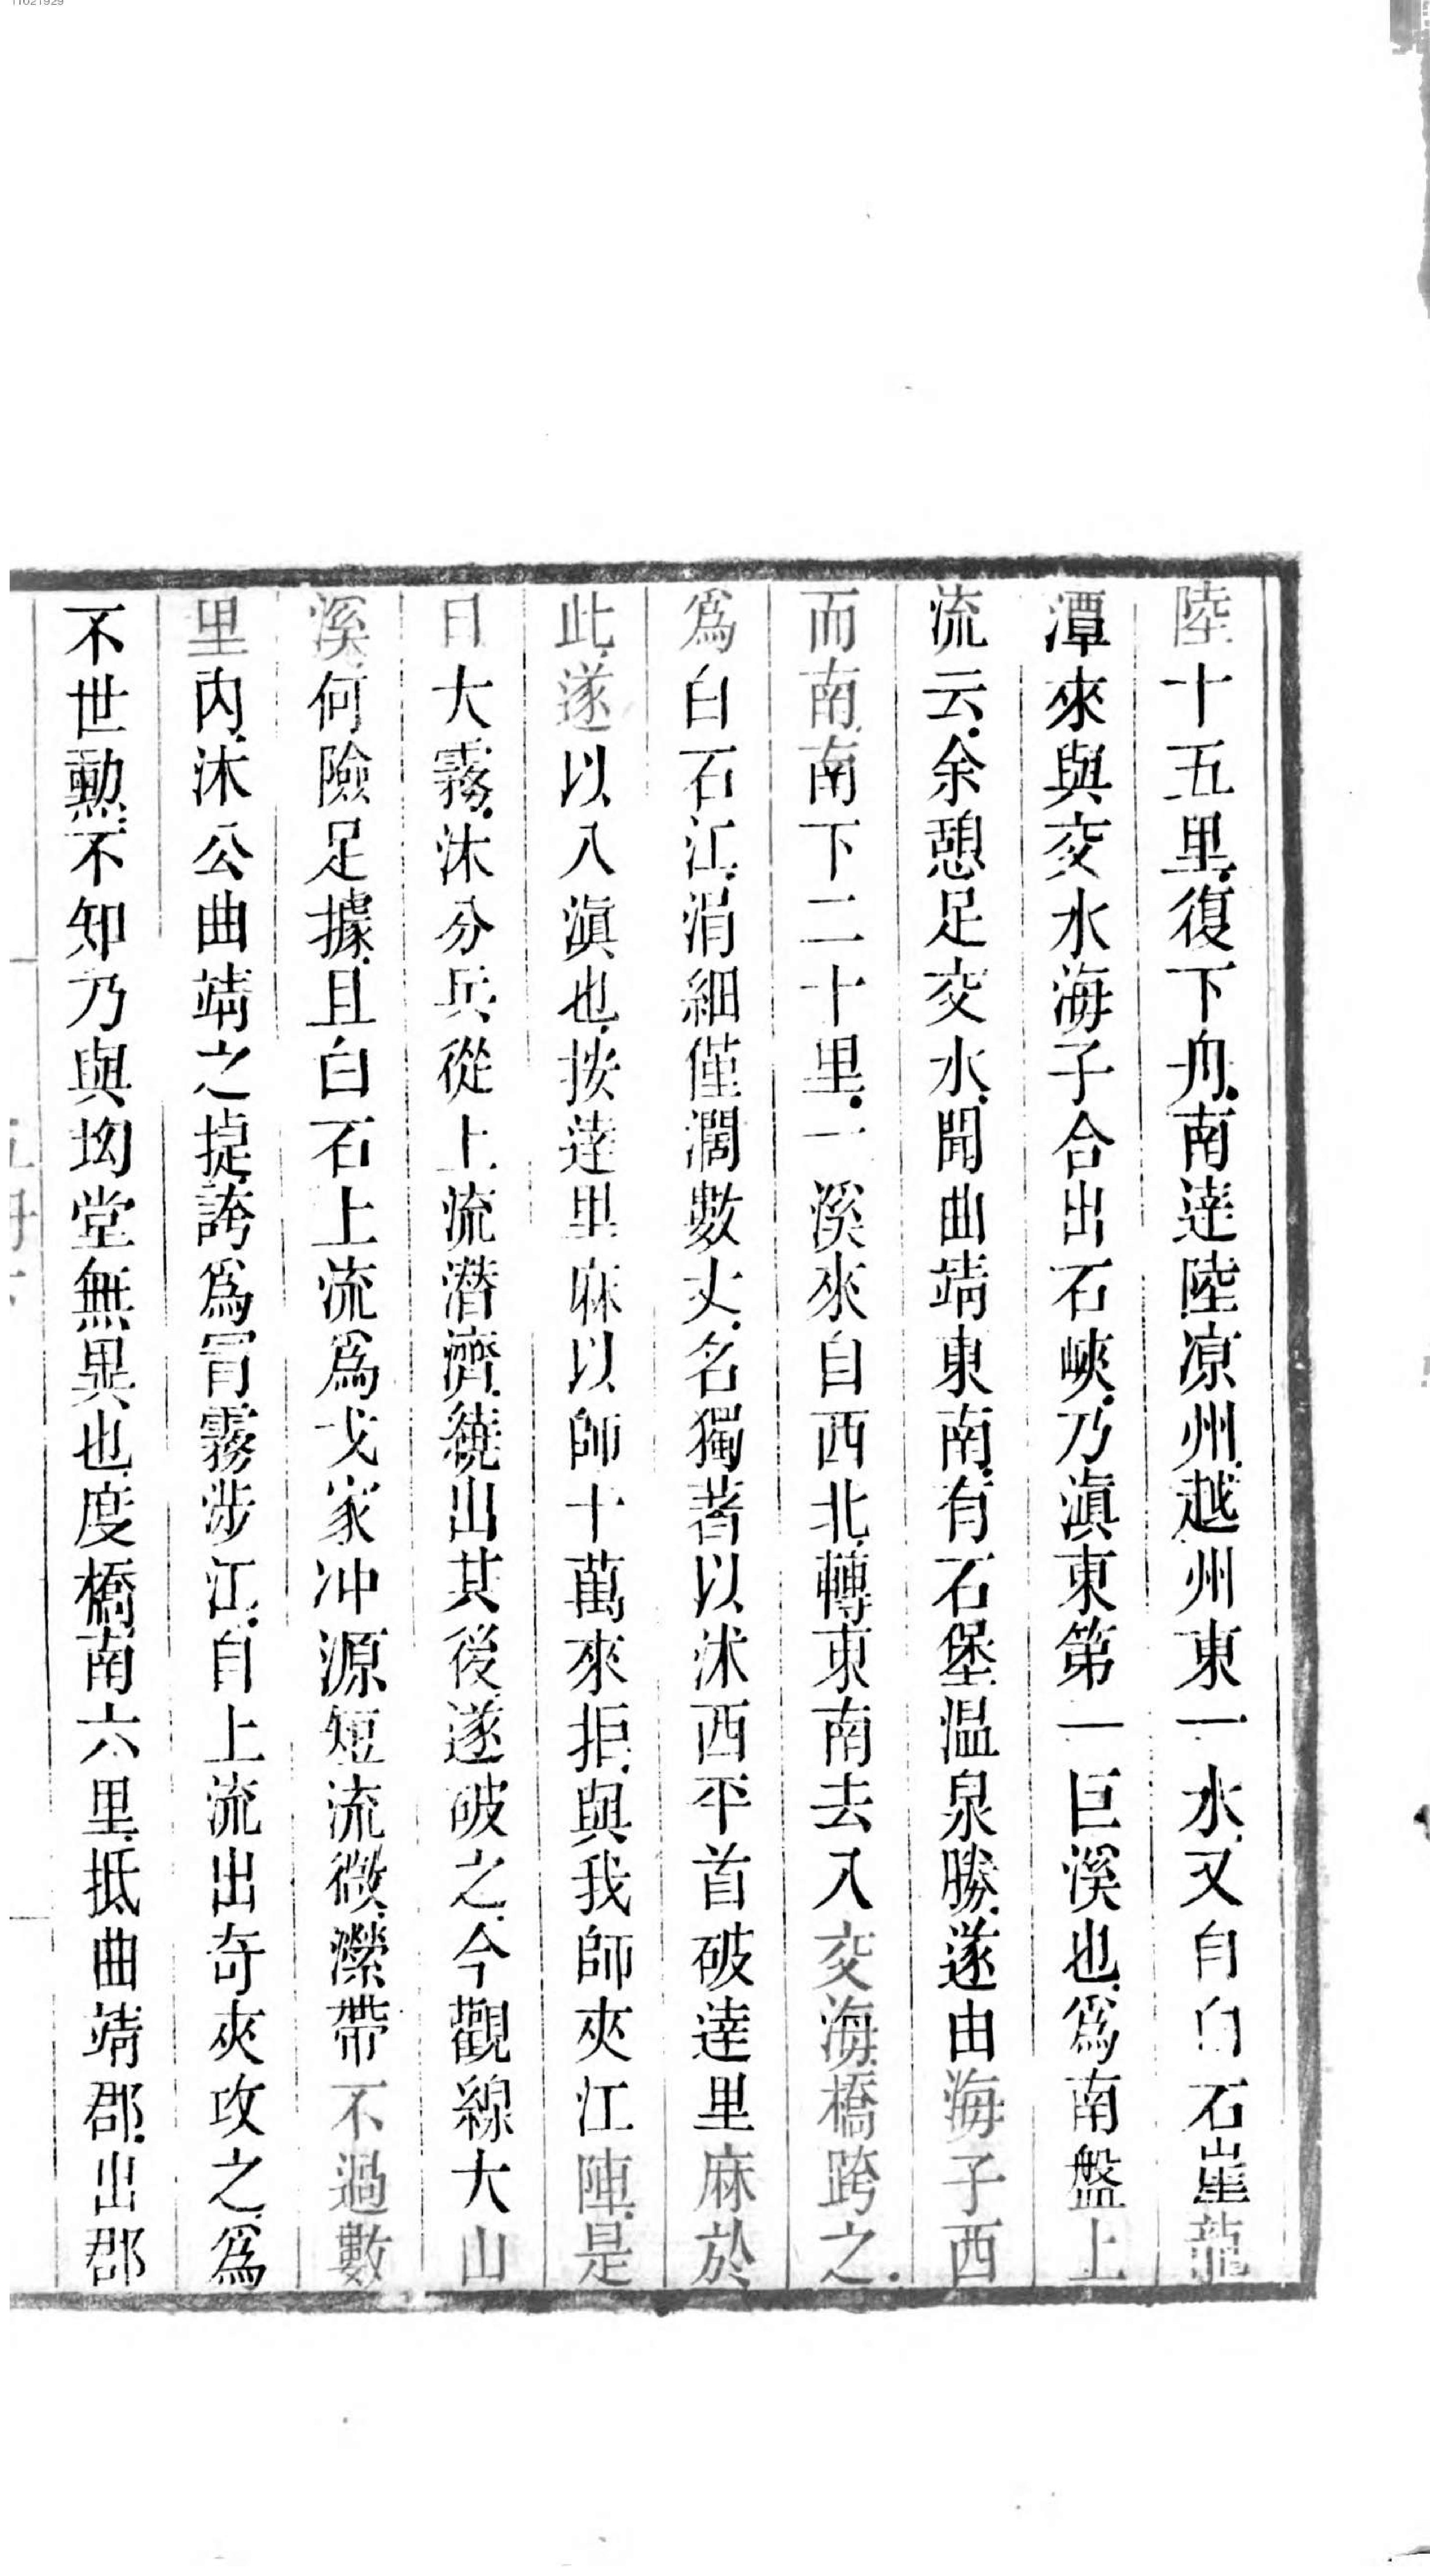 11621929
陸十五里復下舟南逹陸凉州越州東一水又自白石崖龍
潭來與交水海子合出石峽乃滇東第一巨溪也爲南盤上
流云余憩足交水聞曲靖東南有石堡温泉勝遂由海子西
而南南下二十里一溪來自西北轉東南去入交海橋跨之
爲白石江涓細僅濶數丈名獨著以沐西平首破逹里麻於
此遂以入滇也按逹里麻以師十萬來拒與我師夾江陣是
日大霧沐分兵從上流潛濟繞出其後遂破之今觀線大山
溪何險足據且白石上流爲戈家冲源短流微瀠帶不過數
里内沐公曲靖之捷誇爲冐霧涉江自上流出奇夾攻之爲
不世勳不知乃與坳堂無異也度橋南六里抵曲靖郡出郡